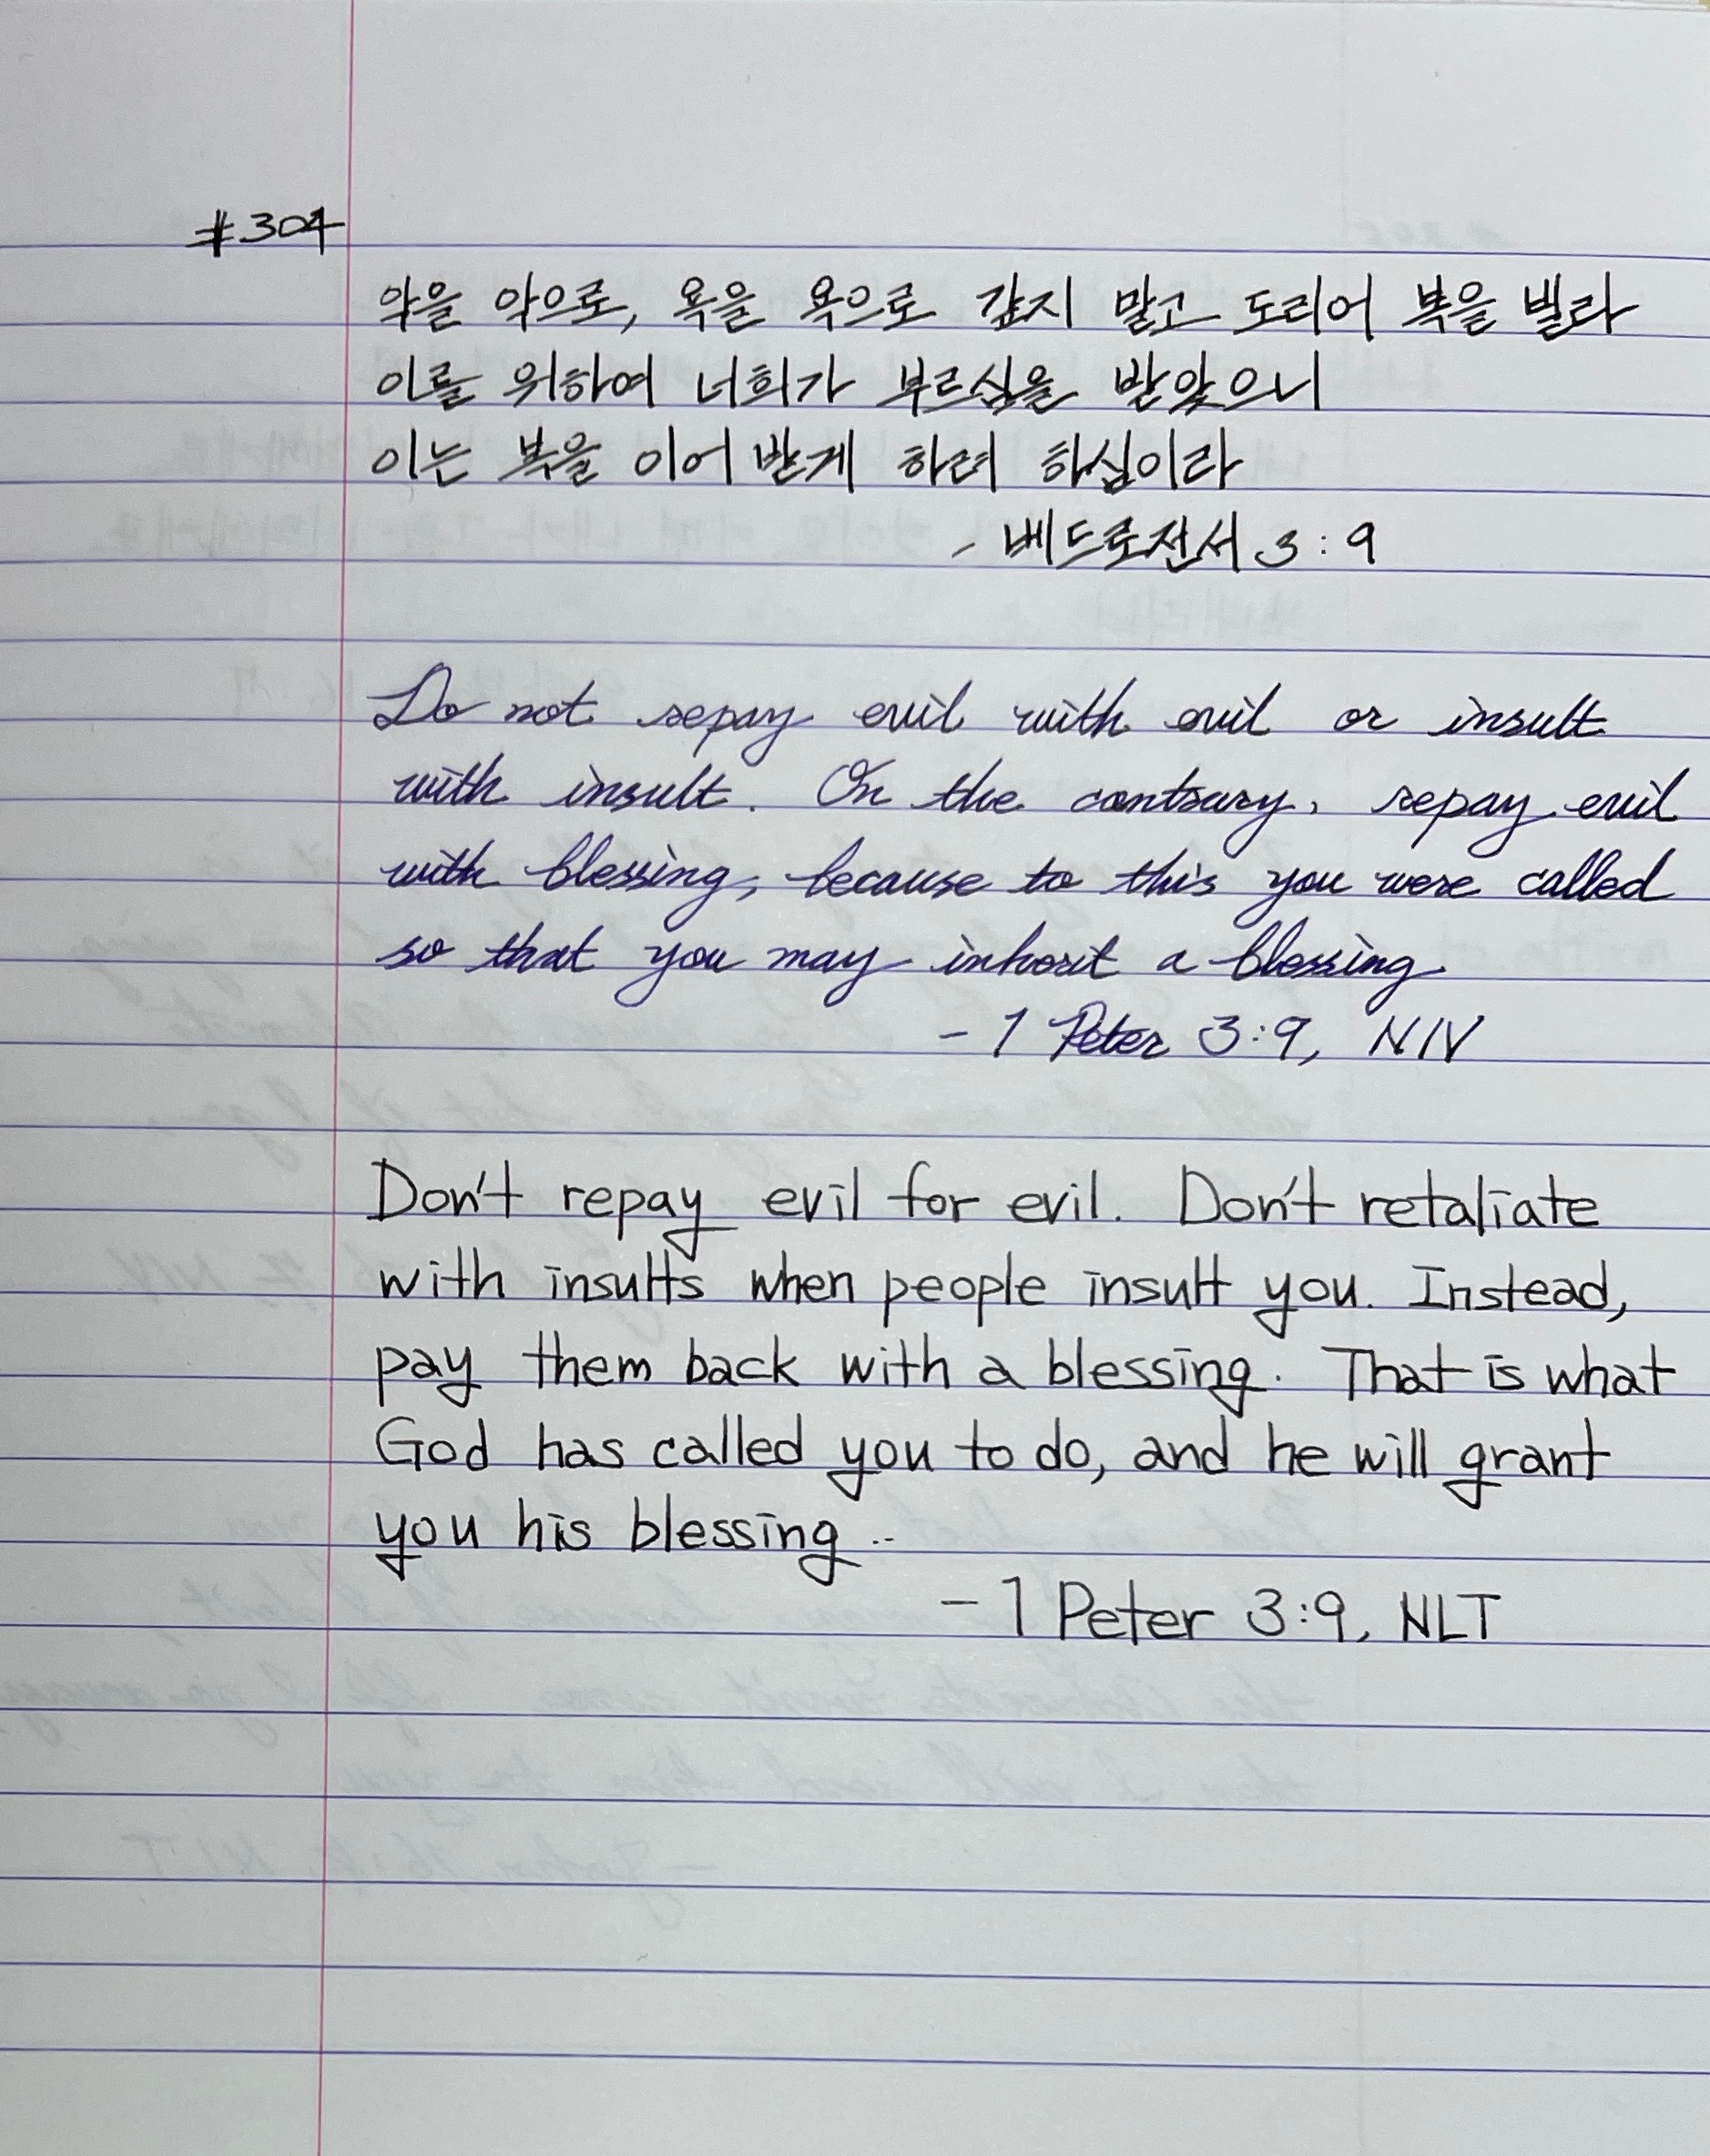 #304
악을 악으로, 욕을 욕으로 갚지 말고 도리어 복을 빌라
이를 위하여 너희가 부르심을 받았으니
이는 복을 이어 받게 하려 하심이라
- 베드로전서 3:9
Do not repay evil with evil or insult
with insult. On the contrary, repay evil
with blessing, because to this you were called
so that you may inherit a blessing.
- 1 Peter 3:9, NIV
Don't repay evil for evil. Don't retaliate
with insults when people insult you. Instead,
pay them back with a blessing. That is what
God has called you to do, and he will grant
you his blessing..
- 1 Peter 3:9, NLT